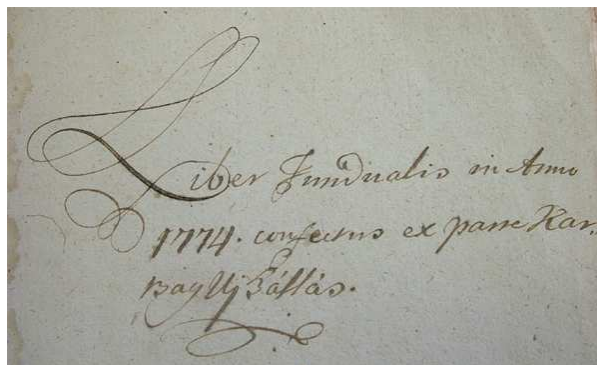 Liber Fundualis in Anno
1774. confectus ex parte Kar-
bay Uj Szállás.